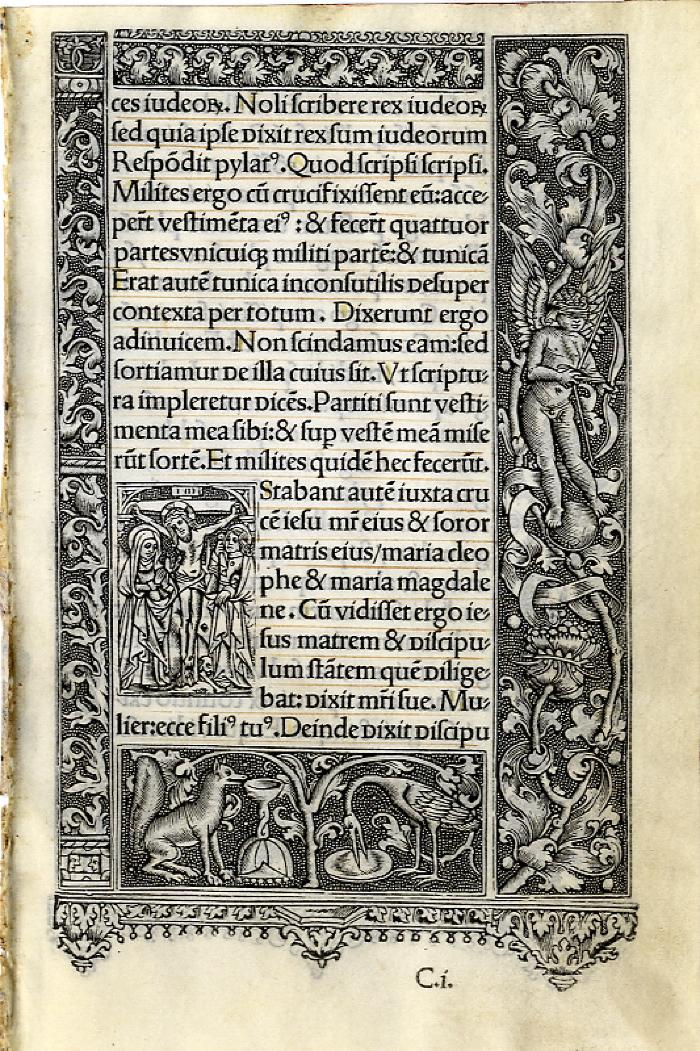 ces iudeoꝝ. Noli scribere rex iudeoꝝ
sed quia ipse dixit rex sum iudeorum
Respōdit pylatꝰ. Quod scripsi scripsi.
Milites ergo cū crucifixissent eū:acce-
pert̄ vestimēta eiꝰ : & fecert̄ quattuor
partes vnicuiqꝫ militi partē:& tunicā
Erat autē tunica inconsutilis desuper
contexta per totum . Dixerunt ergo
adinuicem. Non scindamus eam:sed
sortiamur de illa cuius sit. Vt scriptu-
ra impleretur dicēs. Partiti sunt vesti-
menta mea sibi:& sup vestē meā mise
rūt sortē. Et milites quidē hec fecerūt.
Stabant autē iuxta cru
cē iesu mr̄ eius & soror
matris eius/maria cleo
phe & maria magdale
ne. Cū vidisset ergo ie-
sus matrem & discipu-
lum stātem quē dilige-
bat: dixit mr̄i sue. Mu-
lier:ecce filiꝰ tuꝰ. Deinde dixit discipu
C.i.